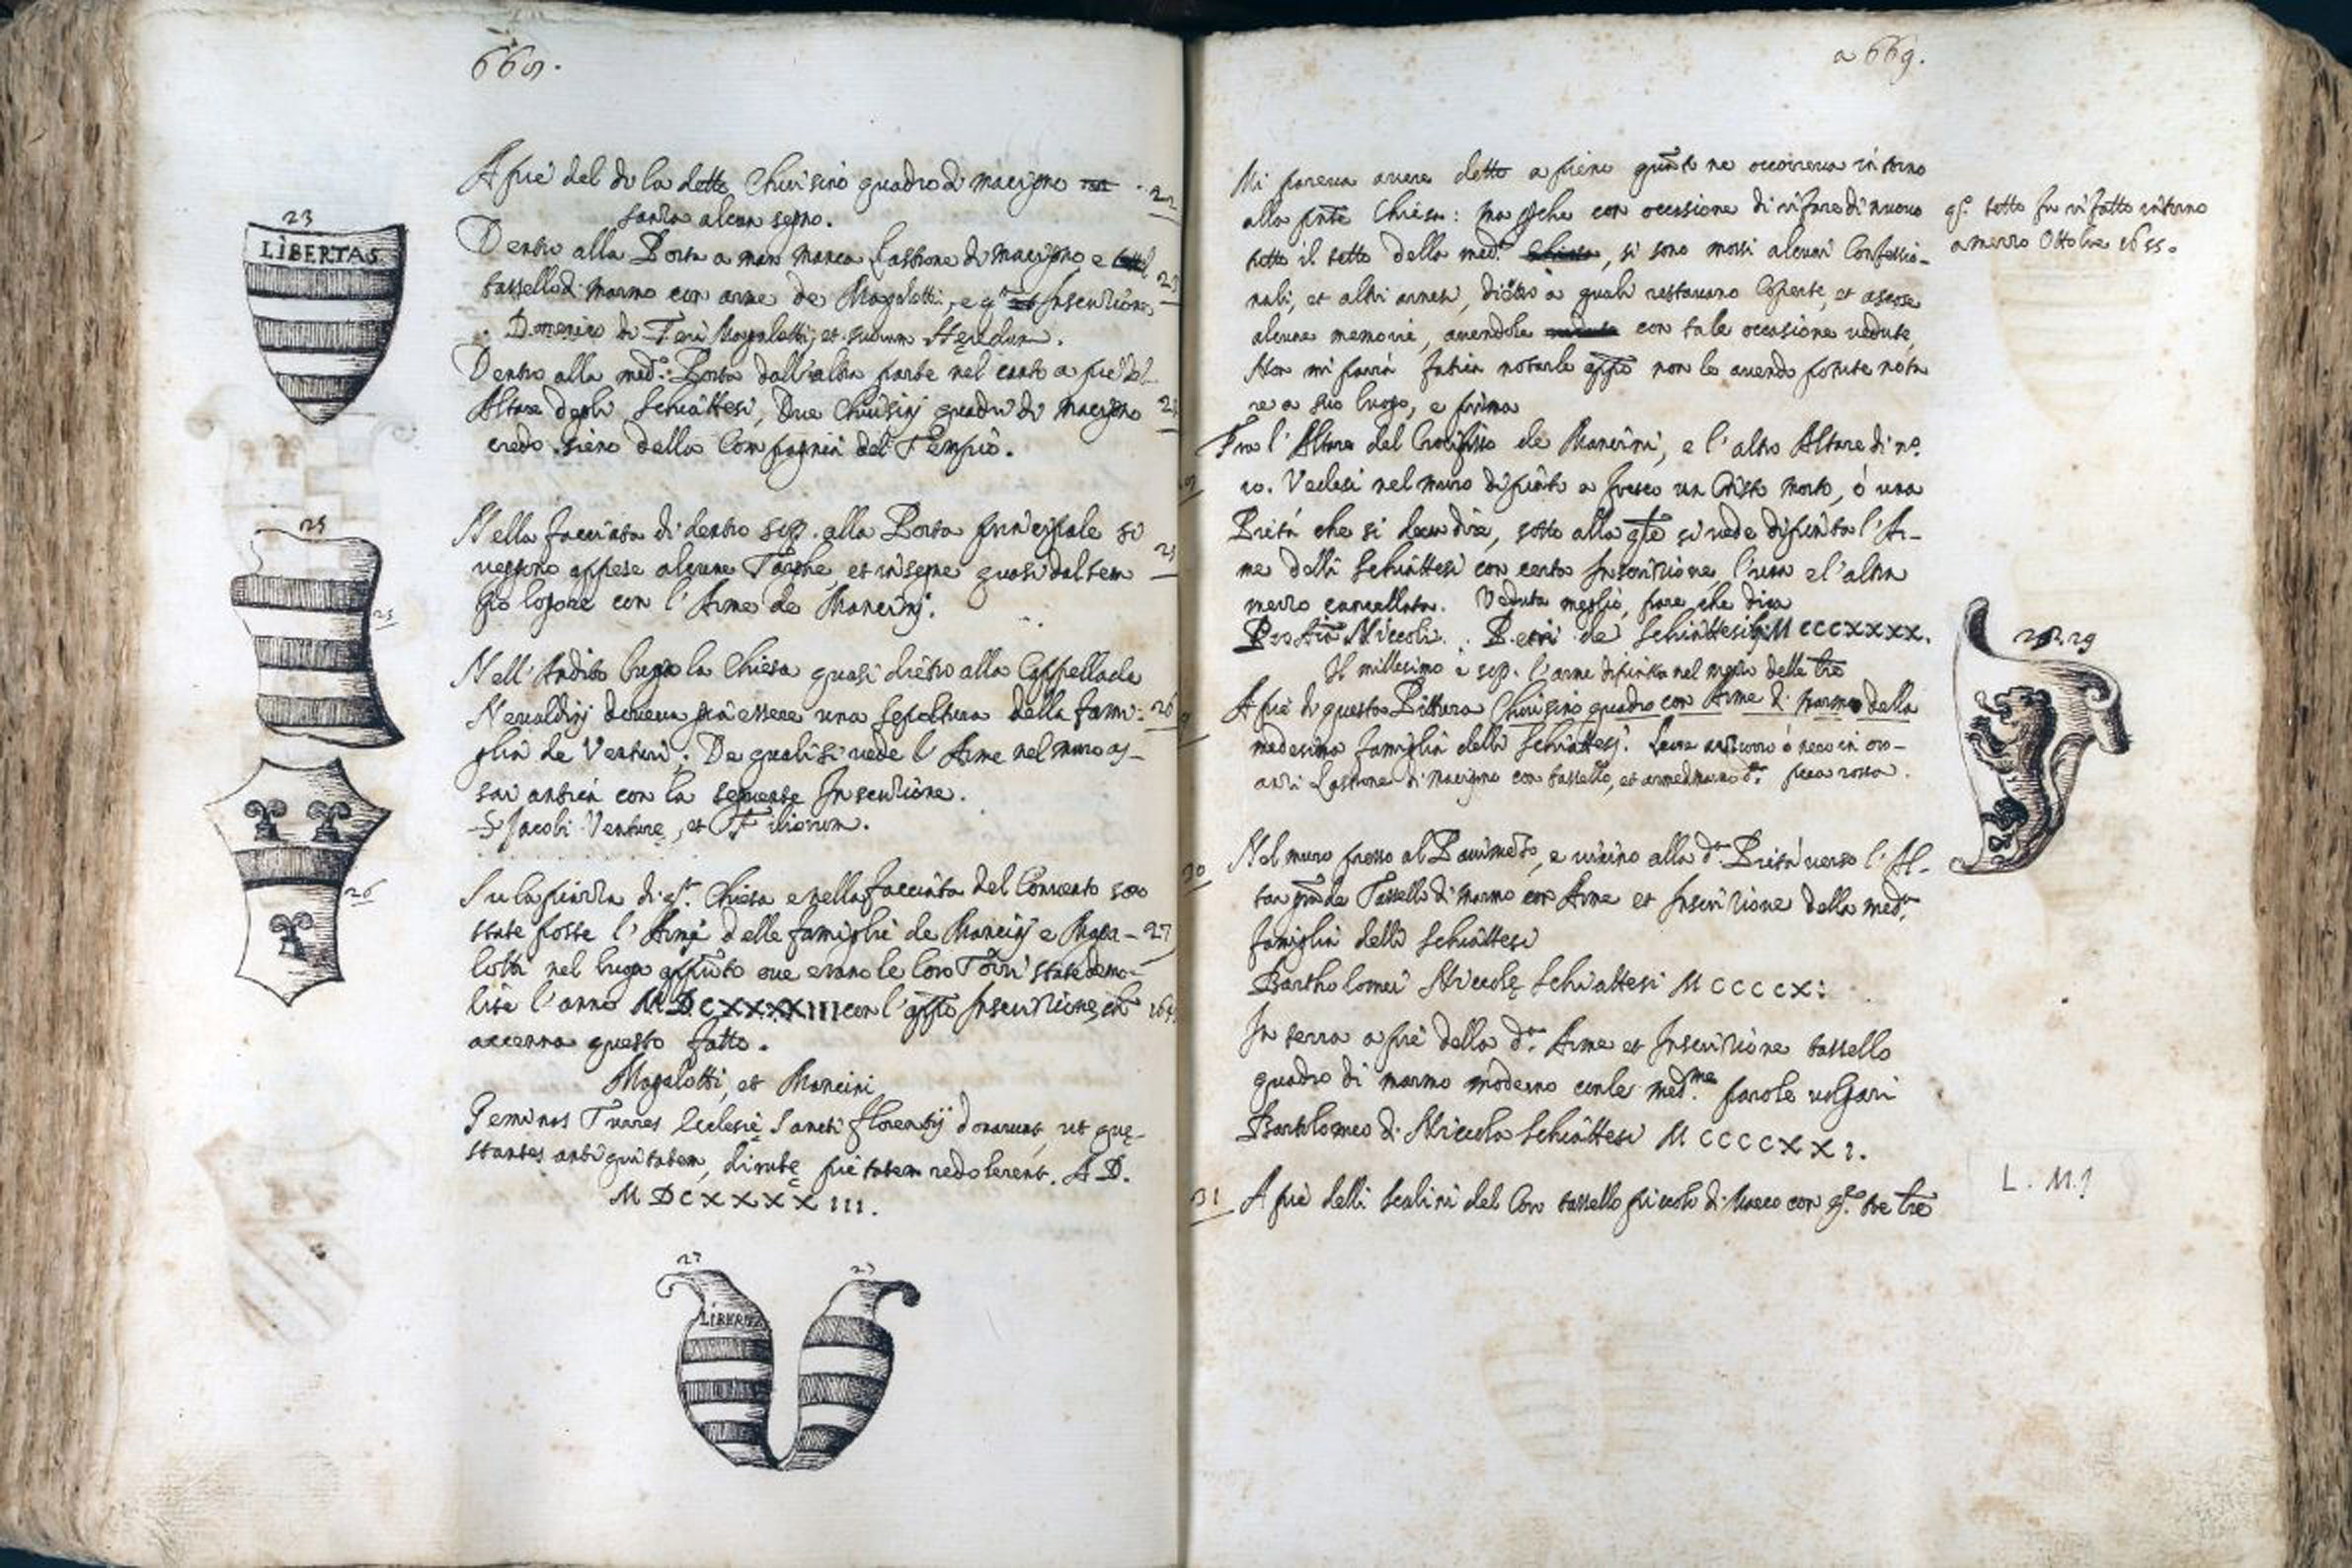 668.
A piè del di la detto Chiusino quadro di macigno 22
senza alcun segno.
Dentro alla Porta a man manca Lastrone di macigno e
tassello di marmo con arme de Magalotti, e qta Inscrizione 23
Domenico di Magalotti, et suorum Heredum.
Dentro alla med.a Porta dall'altra parte nel canto a piè del
Altare degli Schiattesi, Due Chiusini quadri di macigno 24
credo sieno della Compagnia del Tempio.
Nella facciata di dentro sop. alla Porta principale si
veggono appese alcune Targhe, et insegne quasi dal tem 25
po logore con l'Arme de Mancinj.
Nell'Andito lungo la Chiesa quasi dietro alla Cappella de
Neraldinj doveva già essere una sepoltura della fami: 26
glia de Venturi; De quali si vede l'Arme nel muro as-
sai antica con la seguente Inscrizione.
S Jacobi Venture, et Filiorum.
Su la piazza di qsta Chiesa e nella facciata del Convento sono
state poste l'Armi delle famiglie de Mancinj e Maga- 27
lotti nel luogo appunto ove erano le loro Torri state demo-
lite l'anno MDCXXXXIII con l'appo Inscrizione, che
accenna questo fatto.
Magalotti, et Mancini
Geminas Turres Ecclesie Sancti Florentij donarunt, ut quę
stantes antiquitatem, dirutę pietatem redolerent. A D.
MDCXXXXIII.
23
LIBERTAS
25
25
26
27
LIBERTAS
27
a 669.
Mi pareva avere detto a pieno quāto ne occorreva intorno
alla pnte Chiesa: ma pche con occasione di rifare di nuovo
tutto il tetto della med.a, si sono mossi alcuni Confessio-
nali, et altri arnesi, dietro a quali restavano coperte, et ascose
alcune memorie, avendole con tale occasione vedute,
Non mi parrà fatica notarle appo non le avendo potute nota
re a suo luogo, e prima
qo tetto fu rifatto intorno
a mezzo Ottobre 1655.
Fra l'Altare del Crocifisso de Mancini, e l'altro Altare di no.
10. Vedesi nel muro dipinto a fresco un Cristo morto, ó una
Pietà che si deva dire, sotto alla qle si vede dipinta l'Ar-
me delli Schiattesi con certa Inscrizione, l'una e l'altra
mezzo cancellata. Veduta meglio, pare che dica
Niccoli Petri de Schiattesis MCCCXXXX.
Il millesimo è sop. l'arme dipinta nel mezzo delle tre
A piè di questa Pittura Chiusino quadro con Arme di marmo della
medesima famiglia delli Schiattesj.
Lastrone di macigno con tassello, et arme rossa.
28.29
30
Nel muro presso al Pavimēto, e vicino alla da. Pietà verso l'Al-
tar grāde Tassello di marmo con Arme et Inscrizione della meda.
famiglia delli Schiattesi
Bartholomei Niccolę Schiattesi MCCCCX:
In terra a piè della da. Arme et Inscrizione tassello
quadro di marmo moderno con le medme. parole volgari
Bartolomeo di Niccola Schiattesi MCCCCXXI.
31 A piè delli scalini del Coro tassello piccolo di marmo con qste tre lre
L. M.